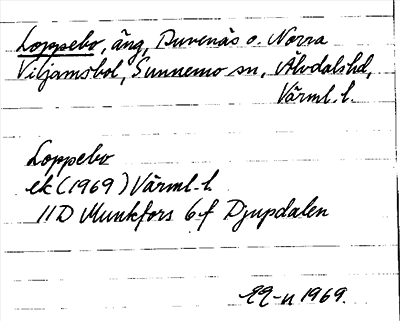 Loppebo, äng, Duvenäs o. Norra
Viljamsbol, Sunnemo sn, Älvdalshd,
Värml. l.
Loppebo
ek (1969) Värml. l
11D Munkfors 6f Djupdalen
1969.